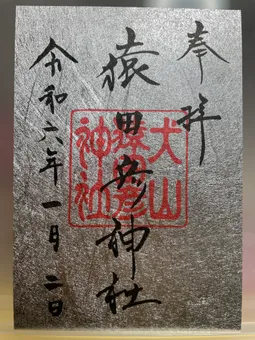 奉拝
猿田彦神社
大山
猿田彦
神社
令和六年一月二日